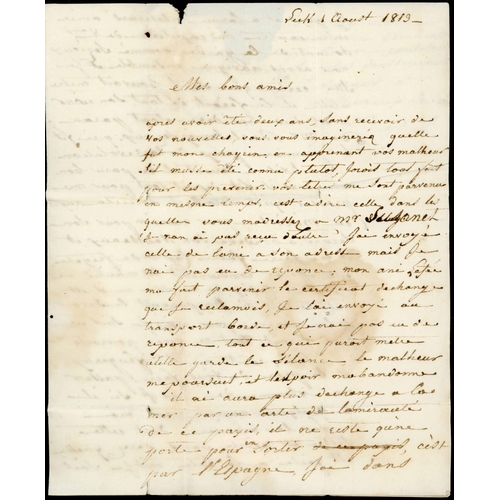 Leek 1 Aoust 1813
Mes bons amis
après avoir été deux ans, sans recevoir de
vos nouvelles, vous vous imaginerez quelle
fut mon chagrin en apprenant vos malheur
sil meusse été connu plutot, jorois tout fait
pour les prevenir, vos lettre me sont parvenus
en mesme temps, cest adire celle dans la
quelles vous madressez a Mr
je nan ai pas reçu dautre J'ai envoyé
celle de Came a son adress mais Je
nai pas eu de reponce, mon ami
ma fait parvenir le certificat dechange
que Je reclamois, Je lai envoyé au
transport borde, et Je nai pas eu de
reponce, tout ce qui puroit metre
utille garde le Silance le malheur
me poursuit, et lespoir mabandonne
il ni aura plus dechange a la
mer par un arte de lamiraute
de ce payis, il ne reste qu'une
porte pour en Sortir de ce payis, c'est
par l'Espagne, J'ai dans